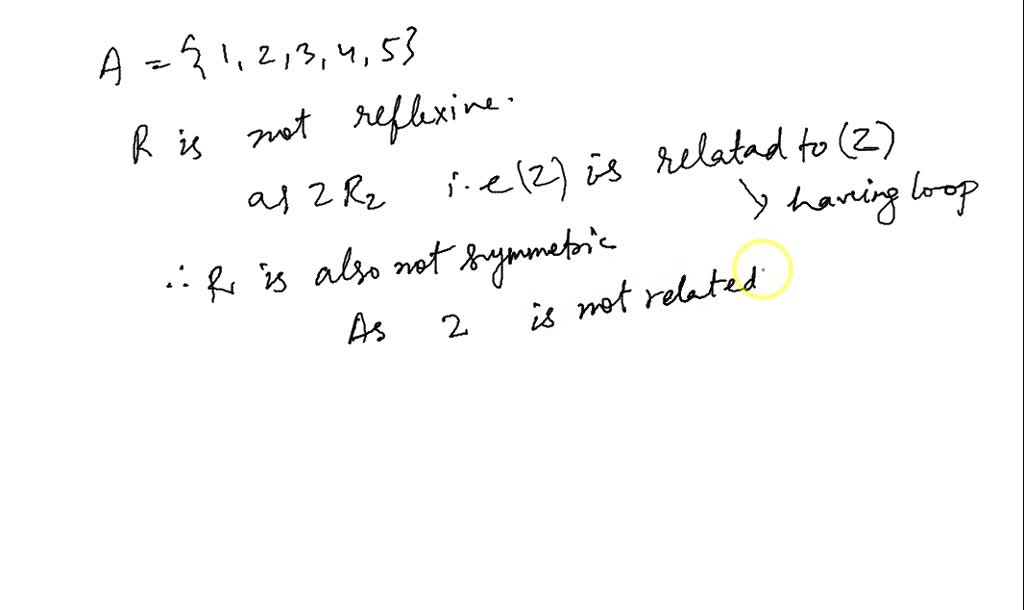 A = {1, 2, 3, 4, 5}
R is not reflexive.
as 2R2 i.e (2) is relatad to (2)
↘ having loop
∴ R is also not symmetric
As 2 is not related